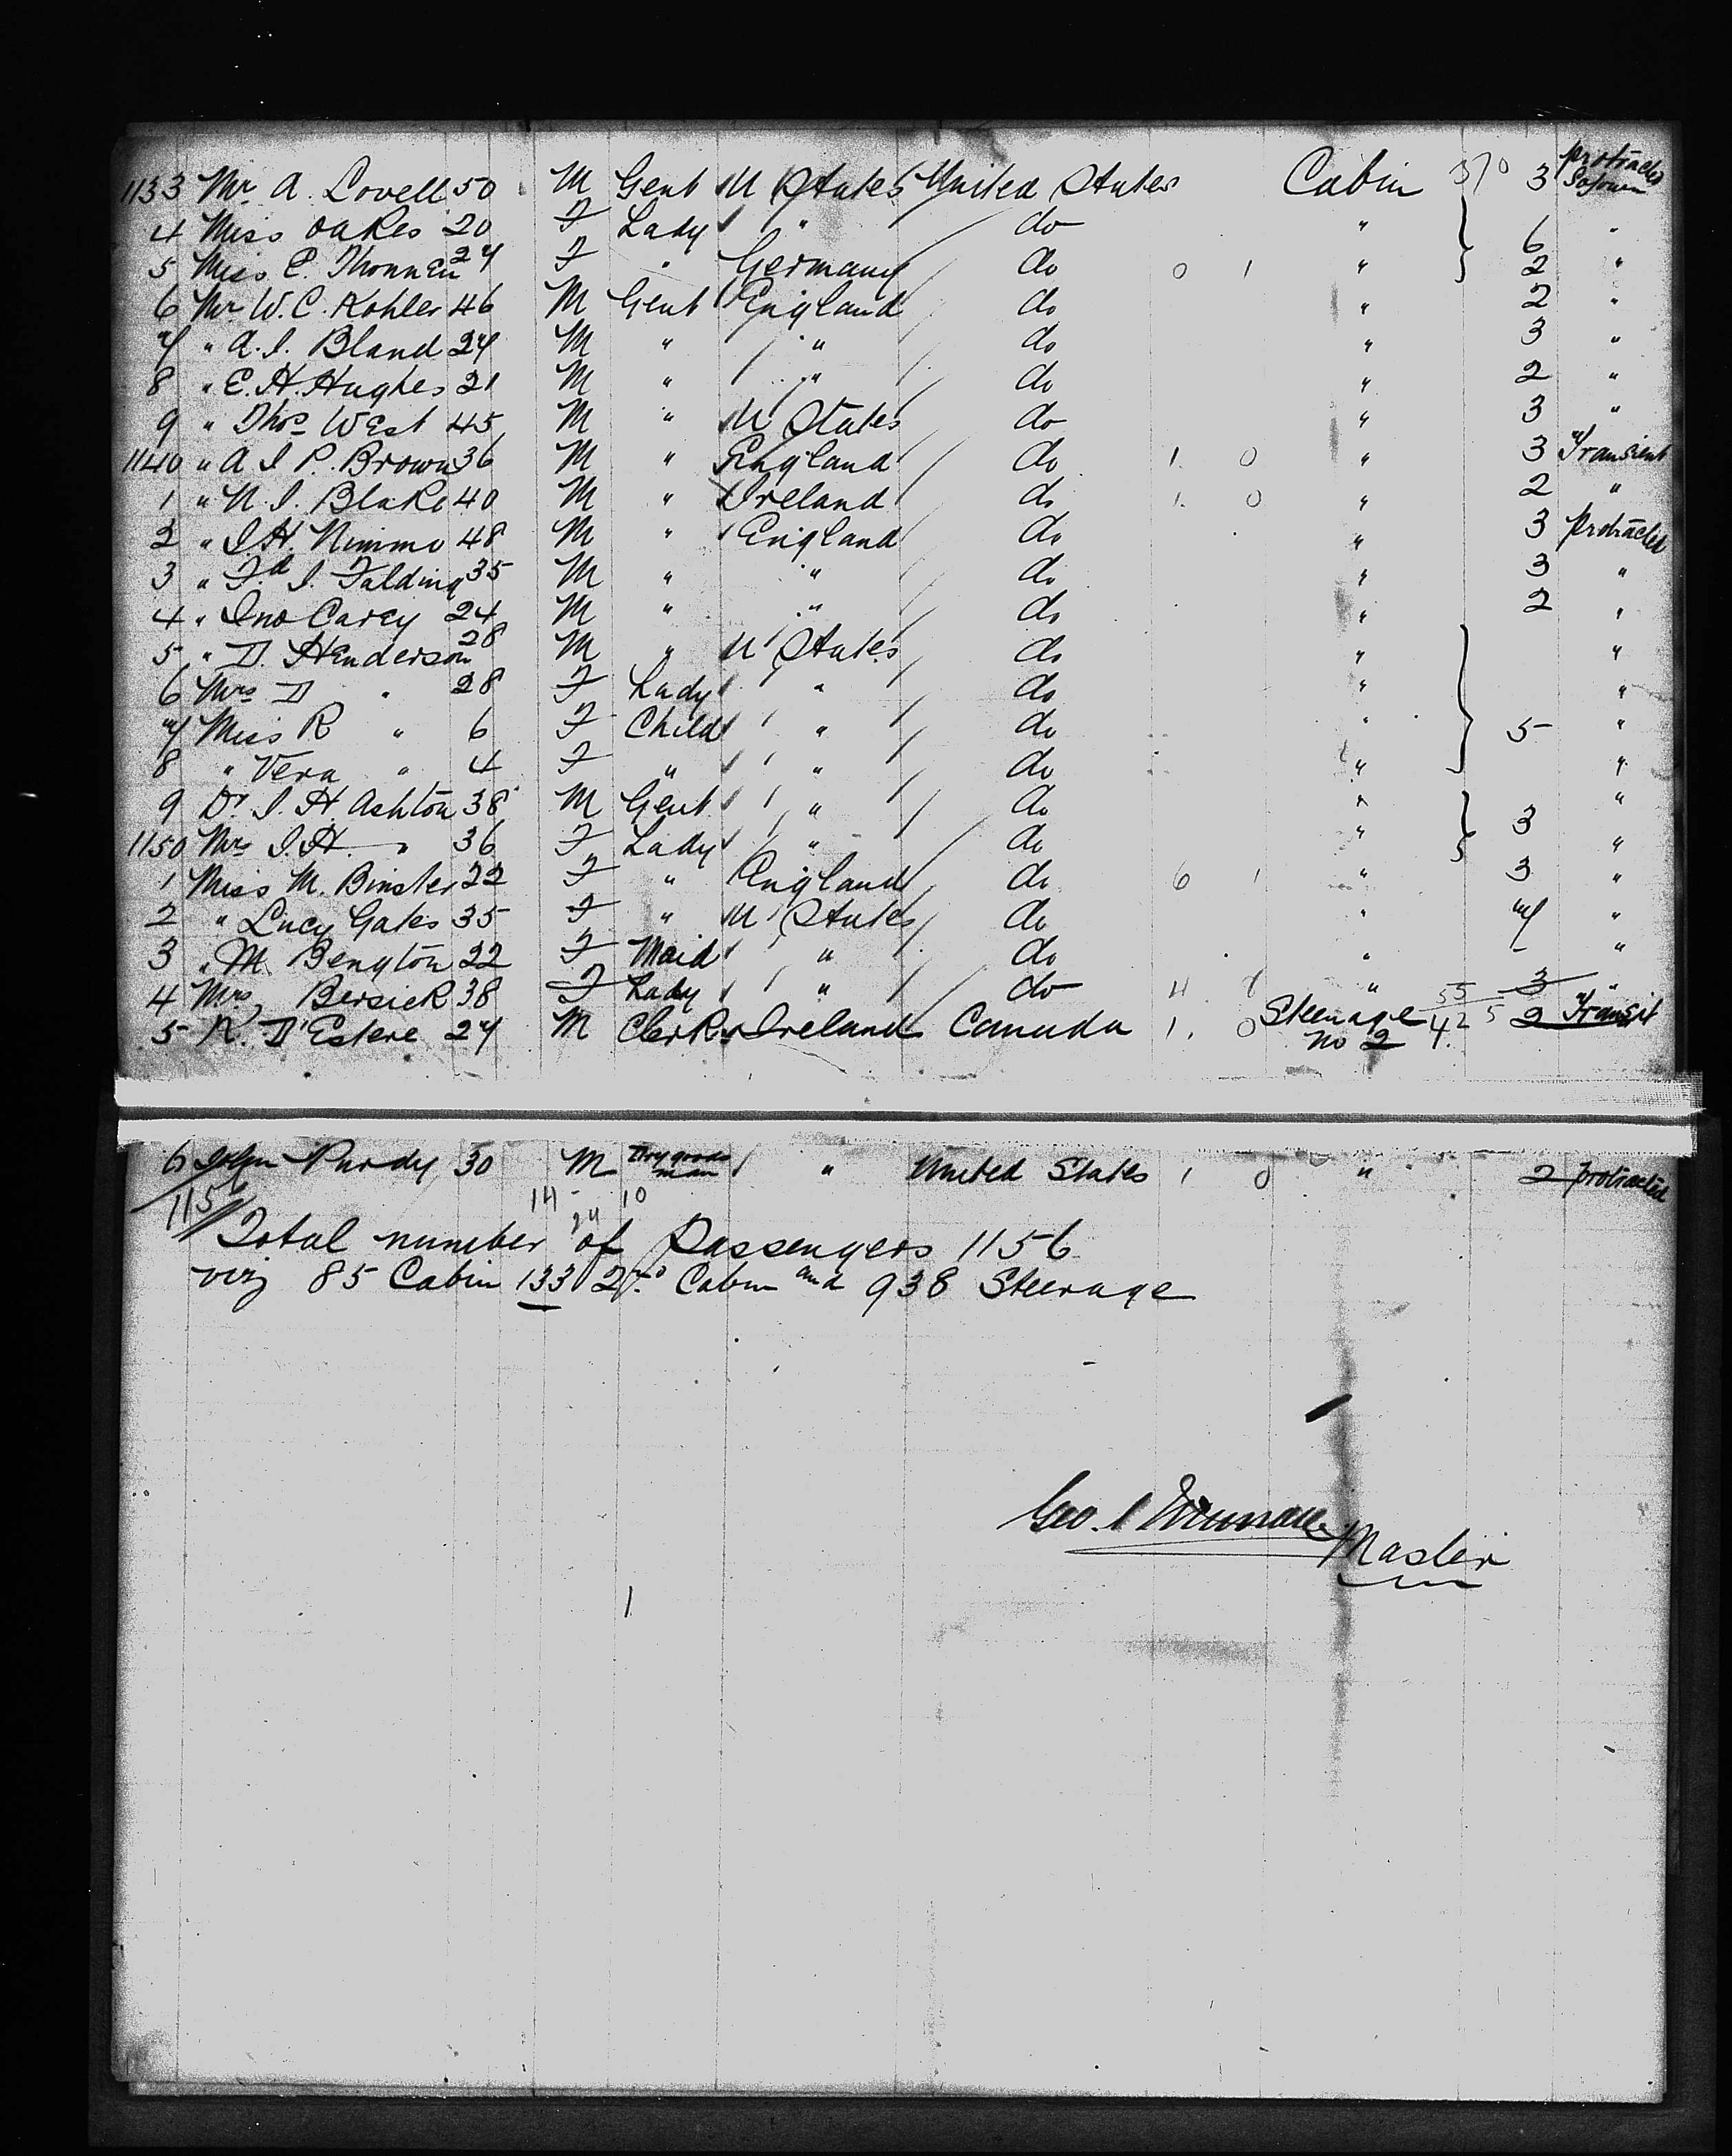 1133 Mr A. Lovell 50 M Gent U States United States Cabin 3 protracted Sojourn
4 Miss Oakes 20 F Lady " do " 6 "
5 Miss E. Thonnen 24 F " Germany do 0 1 " 2 "
6 Mr W. C. Kohler 46 M Gent England do " 2 "
7 " A. J. Bland 24 M " " do " 3 "
8 " E. H. Hughes 21 M " " do " 2 "
9 " Thos West 45 M " U States do " 3 "
1140 " A J P. Brown 36 M " England do 1. 0 " 3 Transient
1 " N. J. Blake 40 M " Ireland do 1. 0 " 2 "
2 " J H. Nimmo 48 M " England do " 3 Protracted
3 " Fd J. Falding 35 M " " do " 3 "
4 " Jno Carey 24 M " " do " 2 "
5 " D. Henderson 28 M " U States do " "
6 Mrs D " 28 F Lady " do " "
7 Miss R " 6 F Child " do " 5 "
8 " Vera " 4 F " " do " "
9 Dr J. H. Ashton 38 M Gent " do " 3 "
1150 Mrs J. H. " 36 F Lady " do " "
1 Miss M. Binster 22 F " England do 0 1 " 3 "
2 " Lucy Gates 35 F " U States do " 7 "
3 " M Bengton 22 F Maid " do " - "
4 Mrs Bersick 38 F Lady " do 4 8 " 55 3 "
5 K. D'Estere 24 M Clerk Ireland Canada 1. 0 Steerage No 2 42 5 2 Transit
6 John Purdy 30 M Dry goods man " United States 1 0 " 2 protracted
1156 14 10
24
Total number of Passengers 1156
viz 85 Cabin 133 2nd Cabin and 938 Steerage
Geo.
Master